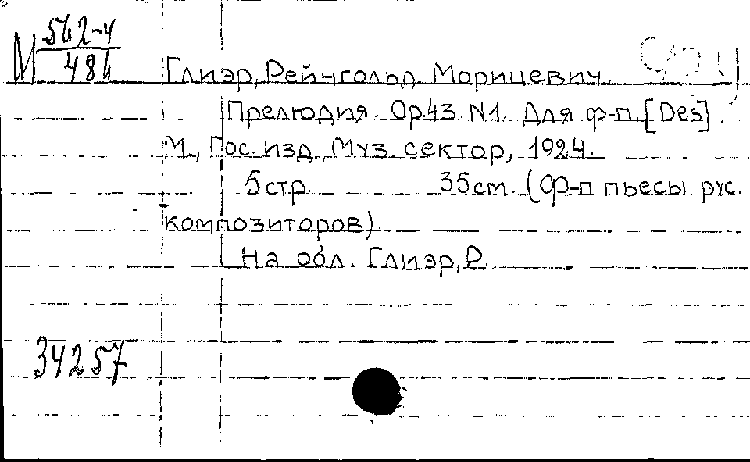 М 562-4
481
Глиэр, Рейнгольд Морицевич.
Прелюдия. Op.43. N1. Для ф-п. [Des].
М., Гос. изд. Муз. сектор, 1924.
5 стр. 35 см. (Ф-п пьесы рус.
композиторов)
На обл. Глиэр, Р.
34257